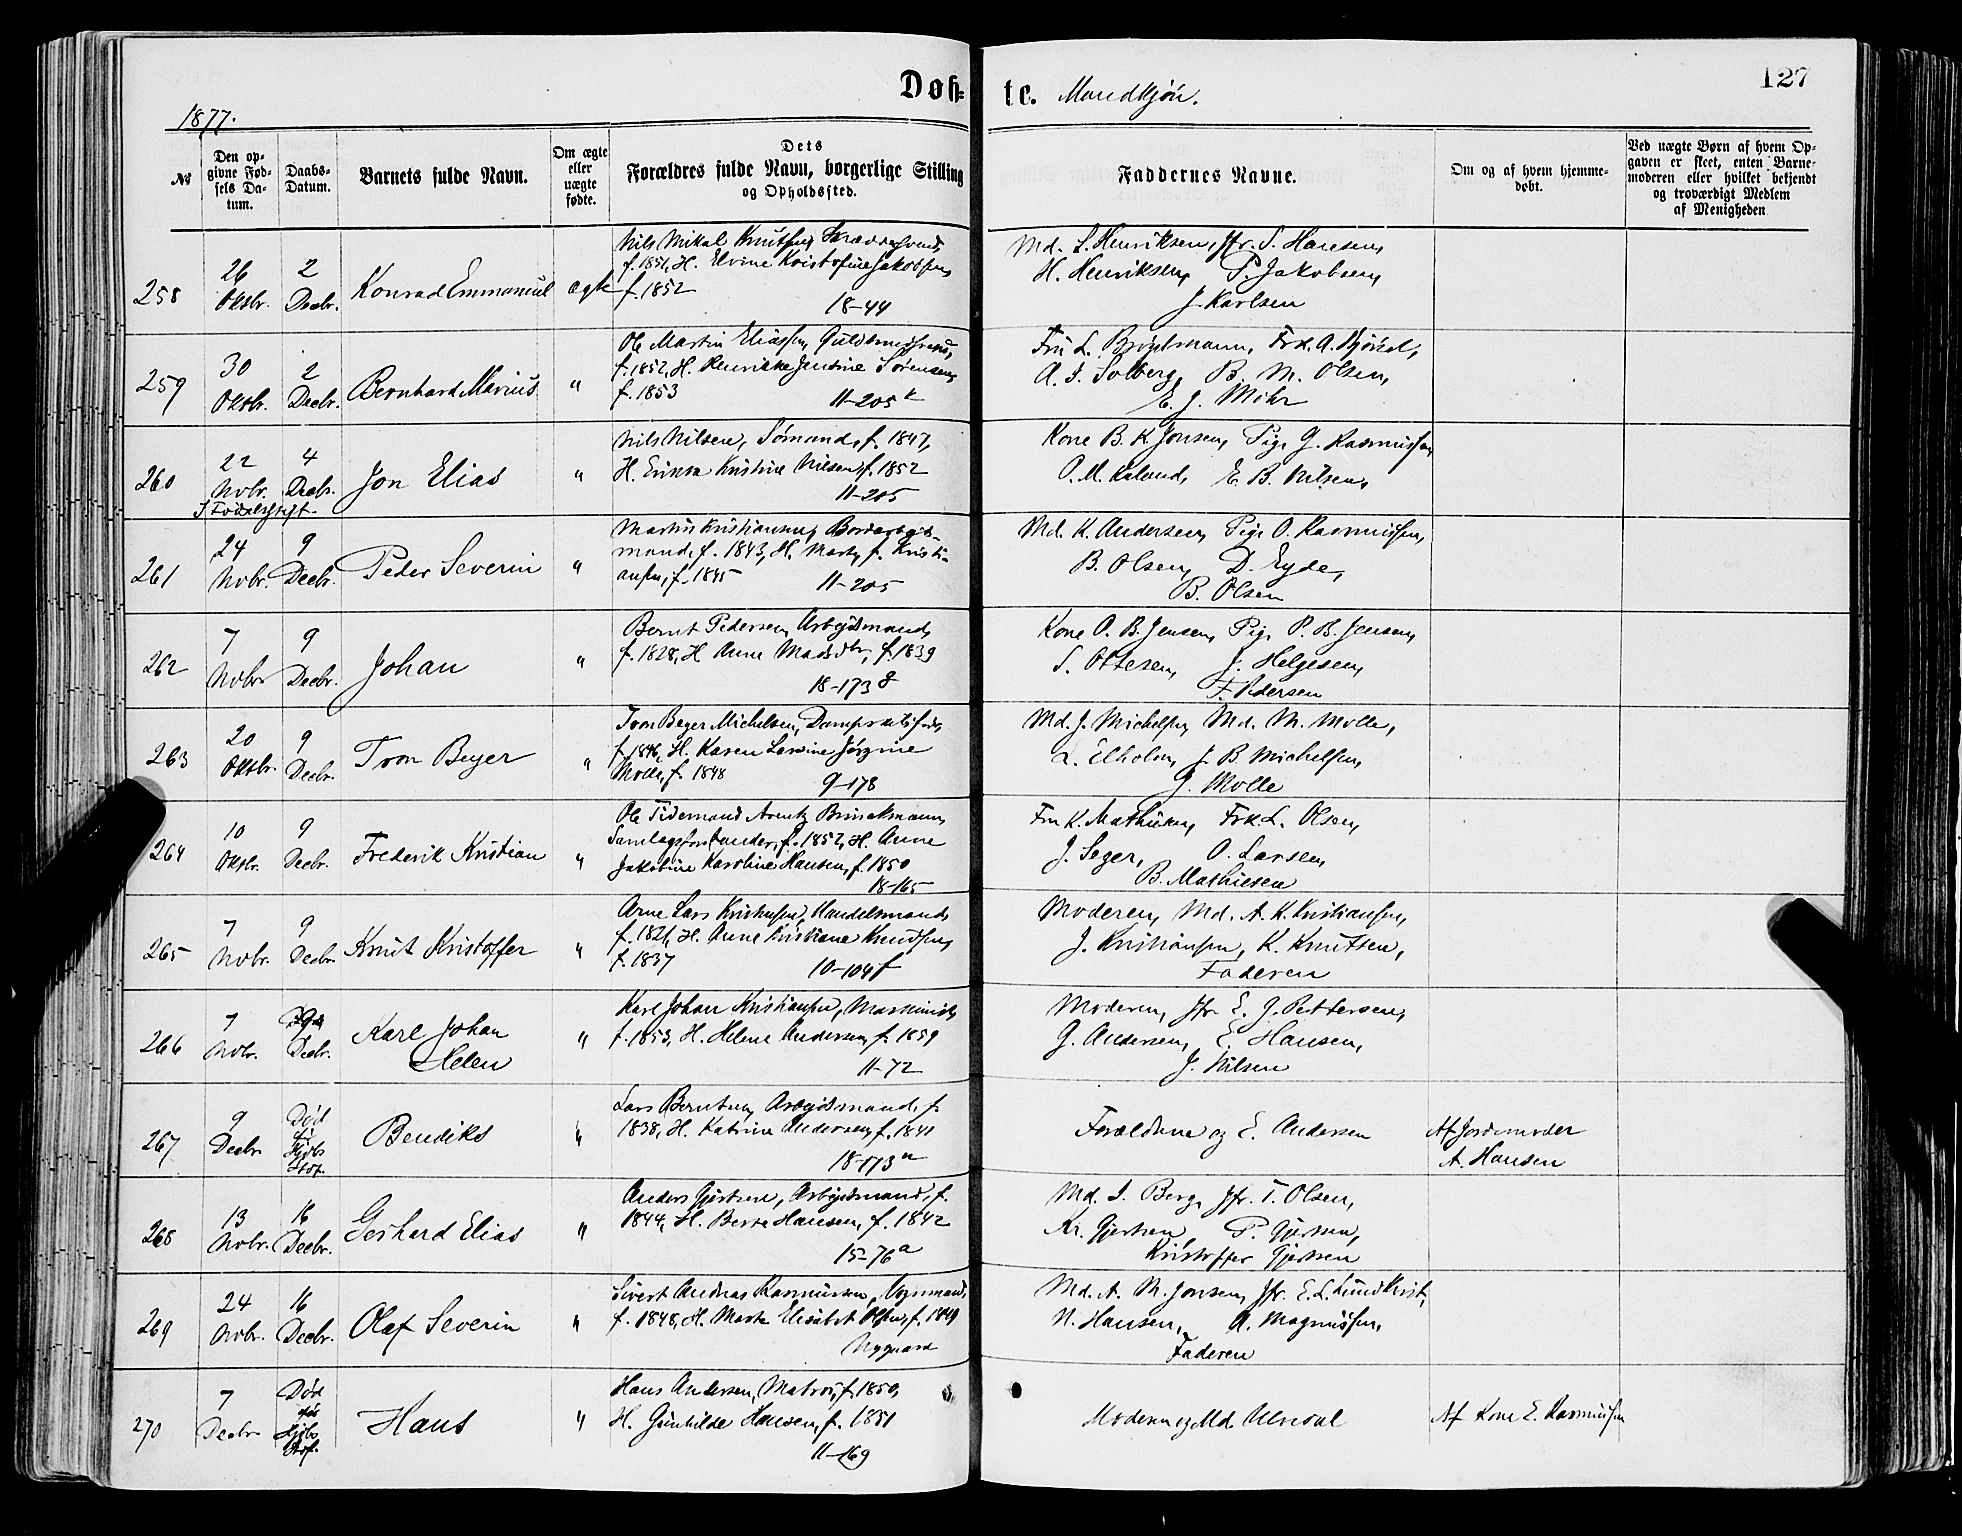 Døb=
te. Mandkjön.
127
1877.
№
Den op-
givne Fød-
sels Da-
tum.
Daabs-
Datum.
Barnets fulde Navn.
Om ægte
eller
uægte
fødte.
Dets
Forældres fulde Navn, borgerlige Stilling
og Opholdssted.
Faddernes Navne.
Om og af hvem hjemme-
døbt.
Ved uægte Børn af hvem Op-
gaven er skeet, enten Barne-
moderen eller hvilket bekjendt
og troværdigt Medlem
af Menigheden
258
26
Oktbr.
2
Decbr.
Konrad Emmanuel
ægte
Nils Mikal Knutsen,
f. 1851, H. Elvine Kristofine Jakobsen,
f. 1852
18-44
Md. L. Henriksen, Jfr. S. Hansen,
H. Henriksen, P. Jakobsen,
J. Karlsen
259
30
Oktbr.
2
Decbr.
Bernhard Marius
"
Ole Martin Eliassen, Guldsmedsvend,
f. 1852, H. Henrikke Jentine Sörensen,
f. 1853
11-205
Fru L. Frk. A.
A. I. Solberg, B. M. Olsen,
E. J. Mohr
260
22
Nvbr.
4
Decbr.
I Födselsstift.
Jon Elias
"
Nils Nilsen, Sömand, f. 1847,
H. Kristine Nilsen, f. 1852
11-205
Kone B. K. Jonsen, Pig. G. Rasmussen,
O. M. Kaland, E. B. Nilsen,
261
24
Nvbr.
9
Decbr.
Peder Severin
"
Martin Kristiansen,
mand, f. 1843, H. Marty f. Kristi-
ansen, f. 1845
11-205
Md. K. Andersen, Pig. O. Rasmussen,
B. Olsen, D. Eyde,
B. Olsen
262
7
Nvbr
9
Decbr.
Johan
"
Bernt Pedersen, Arbejdsmand,
f. 1828, H. Anne Madsdtr, f. 1839
18-173
Kone O. B. Jensen, Pig. P. B. Jensen,
S. Ottesen, J. Helgesen,
F. Pedersen
263
20
Oktbr.
9
Decbr.
Tron Beyer
"
Tron Beyer Michelsen,
f. 1846, H. Karen Lavine Jörgine
Molle, f. 1848
9-178
Md. J. Michelsen, Md. M. Molle,
L. Elholm, J. B. Michelsen,
G. Molle
264
10
Oktbr.
9
Decbr.
Frederik Kristian
"
Ole Tidemand Arentz Brinckmann,
Samlagsforstander, f. 1852, H. Anne
Jakobine Karoline Hansen, f. 1850
18-165
Fru K. Mathiesen, Frk. L. Olsen,
J. Seger, O. Larsen,
B. Mathiesen
265
7
Nvbr.
9
Decbr
Knut Kristoffer
"
Arne Lars Kristensen, Handelsmand,
f. 1821, H. Anne Kristiane Knudsen,
f. 1837
10-104
Moderen, Md. A. K. Kristiansen,
J. Kristiansen, K. Knutsen,
Faderen
266
7
Nvbr.
Decbr.
Karl Johan
Helen
"
Karl Johan Kristiansen, Maskinist,
f. 1853, H. Helene Andersen, f. 1859
11-72
Moderen, Jfr E. J. Pettersen,
G. Andersen, E. Hansen,
J. Nilsen
267
9
Decbr
Död
Bendiks
"
Lars Berntsen, Arbejdsmand, f.
1838, H. Katrine Andersen, f. 1841
18-173
Forældrene og E. Andersen
Af Jordemoder
A. Hansen
268
13
Nvbr.
16
Decbr.
Gerhard Elias
"
Anders Gjertsen, Arbejdsmand, f.
1844, H. Berte Hansen, f. 1842
15-76 a
Md. I. Berg, Jfr. T. Olsen,
Kr. Gjertsen, P. Gjertsen,
Kristoffer Gjertsen
269
24
Nvbr.
16
Decbr.
Olaf Severin
"
Sivert Andreas Rasmussen, Vognmand,
f. 1848, H. Marte Elisabet Olsen, f. 1849
Nygaard
Md. A. M. Jonsen, Jfr. E. L. Lundkvist,
N. Hansen, A. Magnussen,
Faderen
270
7
Decbr
Död
Hans
"
Hans Andersen, Matros, f. 1850,
H. Gunhilde Hansen, f. 1851
11-169
Moderen og Md. Ulvedal
Af Kone E. Rasmussen